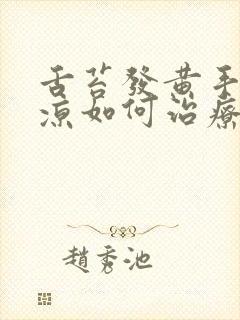 舌苔發黄手
凉如何治療
趙秀池